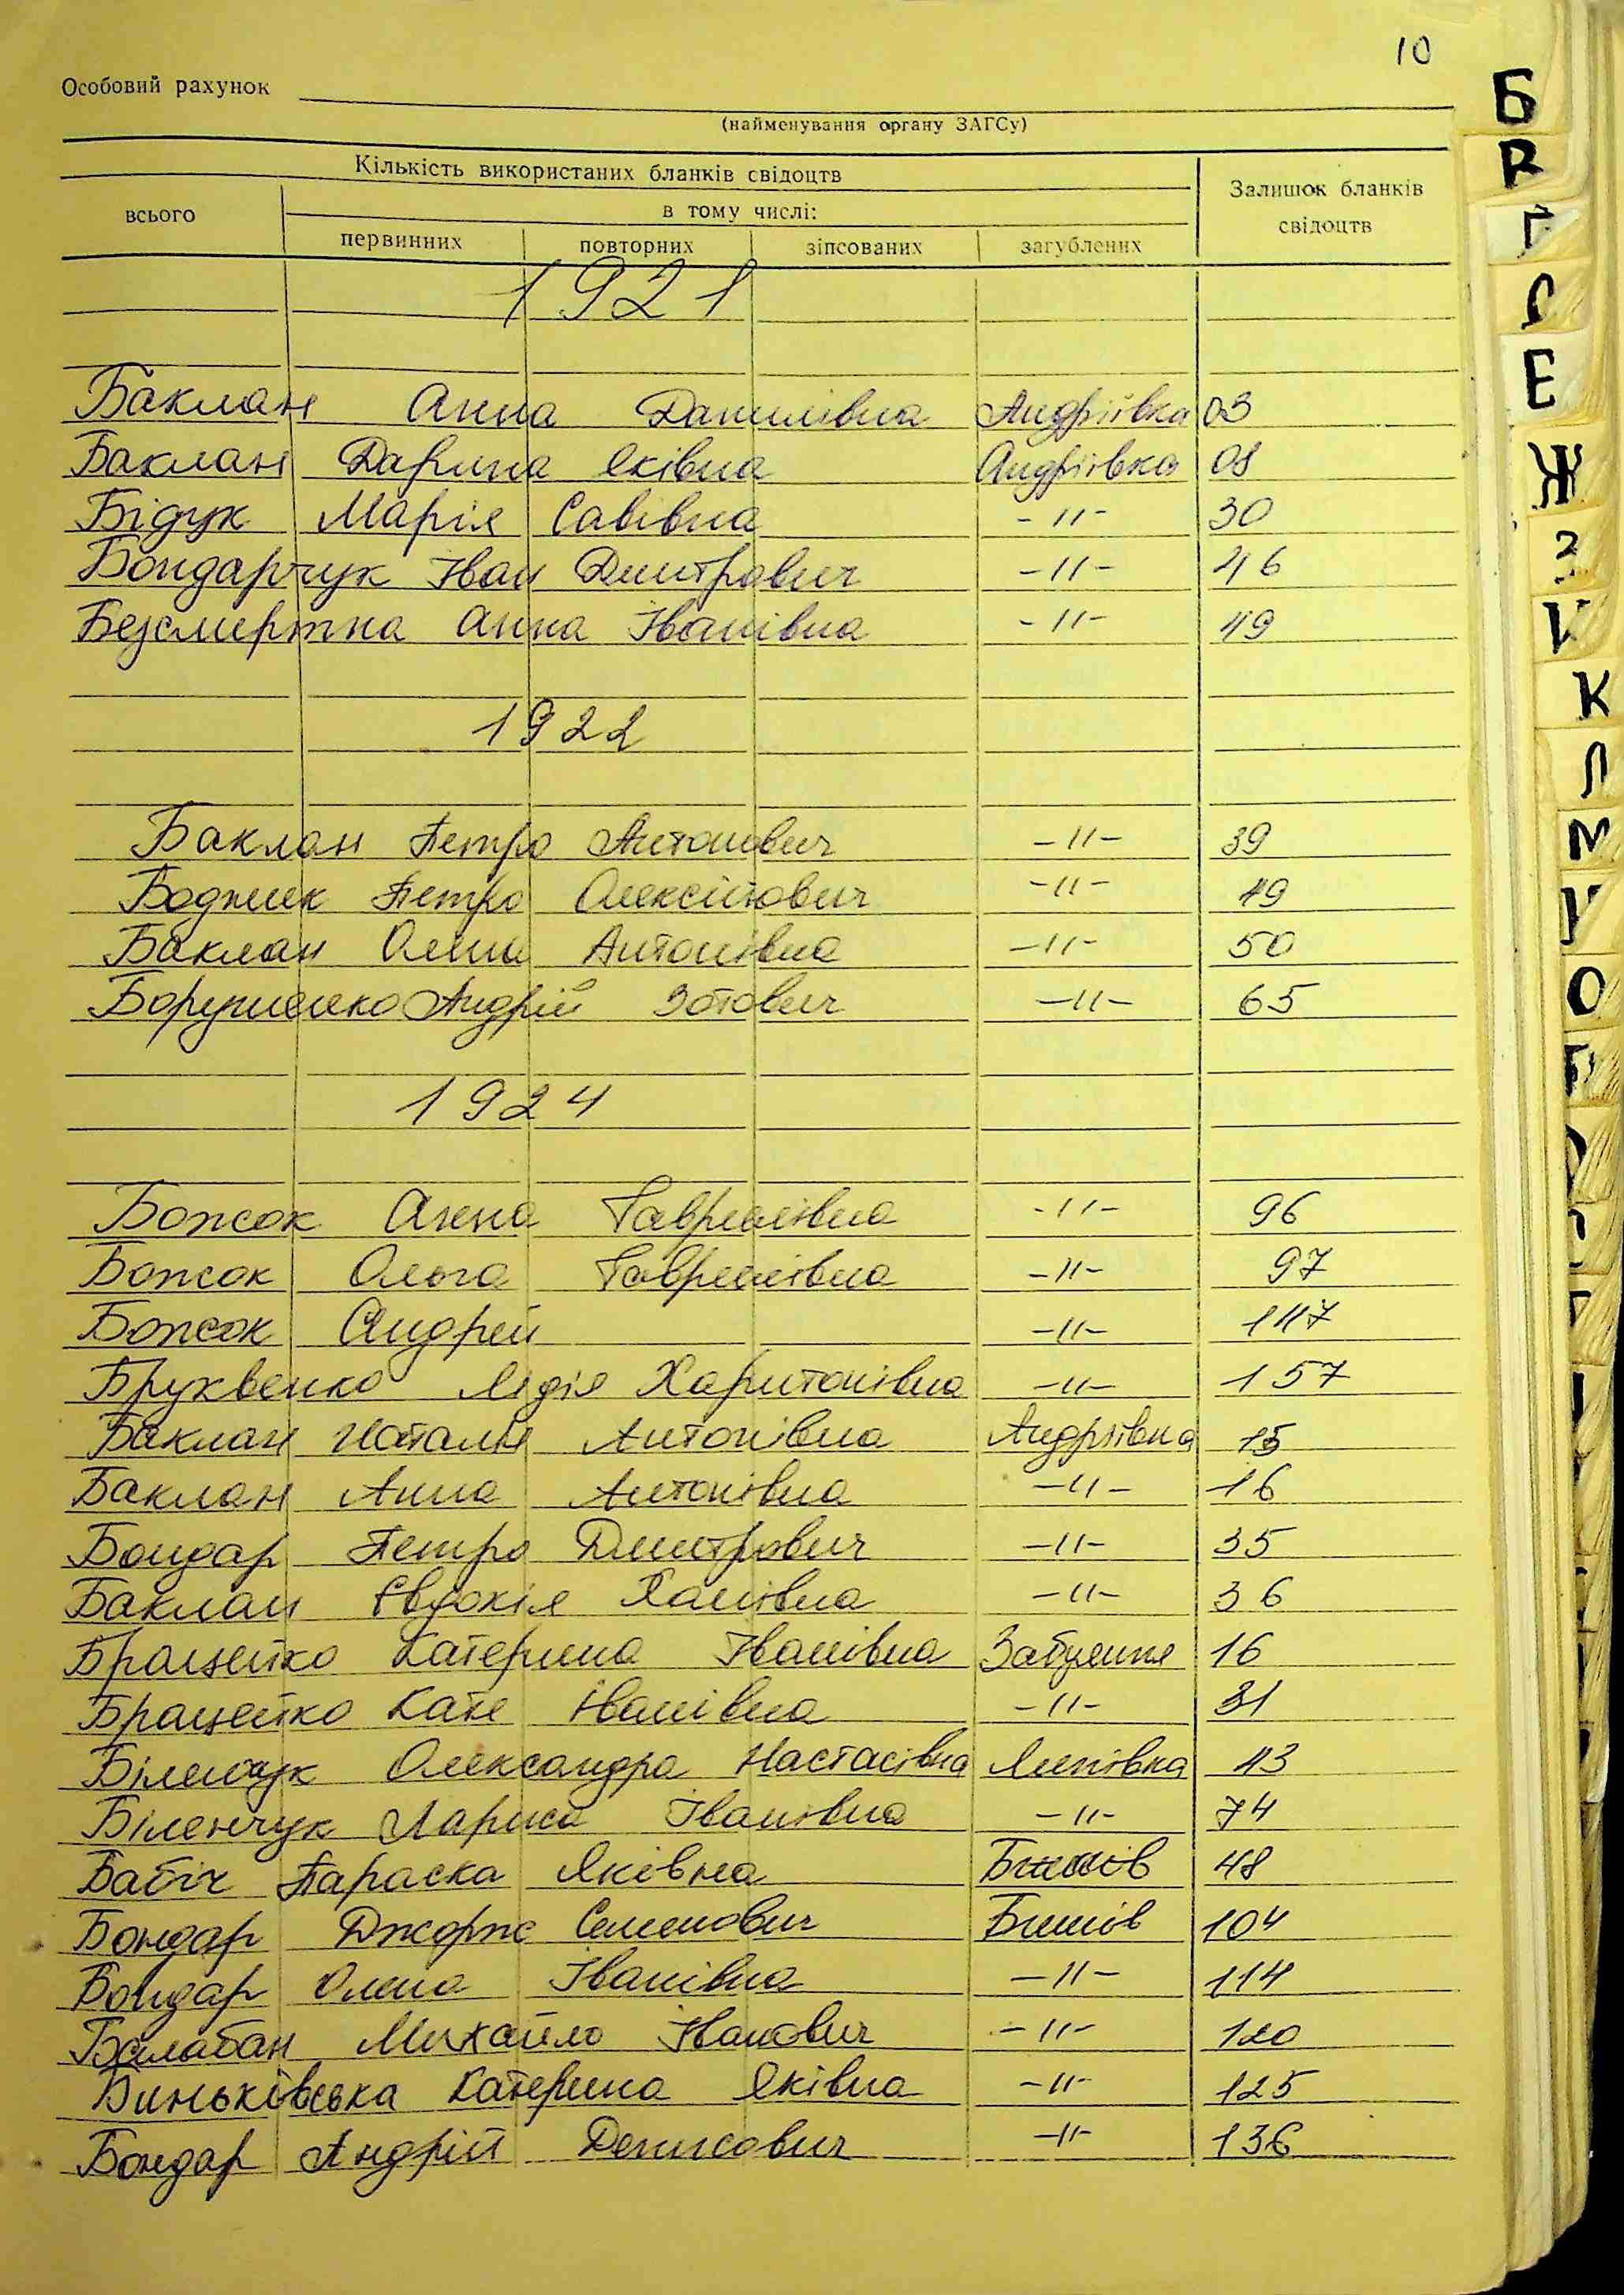 10
Особовий рахунок
(найменування органу ЗАГСу)
Кількість використаних бланків свідоцтв
Залишок бланків свідоцтв
всього
в тому числі:
первинних повторних зіпсованих загублених
1921
Баклан Анна Данилівна Андріївка 03
Баклан Дарина Яківна Андріївка 08
Бідук Марія Савівна -//- 30
Бондарчук Іван Дмитрович -//- 46
Безсмертна Анна Іванівна -//- 49
1922
Баклан Петро Антонович -//- 39
Петро Олексійович -//- 49
Баклан Олена Антонівна -//- 50
Андрій Зотович -//- 65
1924
Божок Анна Гаврилівна -//- 96
Божок Ольга Гаврилівна -//- 97
Божок Андрей -//- 147
Бруквенко Лідія Харитонівна -//- 157
Баклан Наталія Антонівна Андріївка 15
Баклан Анна Антонівна -//- 16
Бондар Петро Дмитрович -//- 35
Баклан Євдокія -//- 36
Брацейко Катерина Іванівна Забуяння 16
Брацейко Кате Іванівна -//- 31
Біленчук Олександра Настасівна Липівка 43
Біленчук Лариса Іванівна -//- 74
Бабіч Параска Яківна Бишів 48
Бондар Джорж Семенович Бишів 104
Бондар Олена Іванівна -//- 114
Балабан Михайло Іванович -//- 120
Биньківська Катерина Яківна -//- 125
Бондар Андрій Денисович -//- 136
Б
В
Г
Е
Ж
З
И
К
Л
М
О